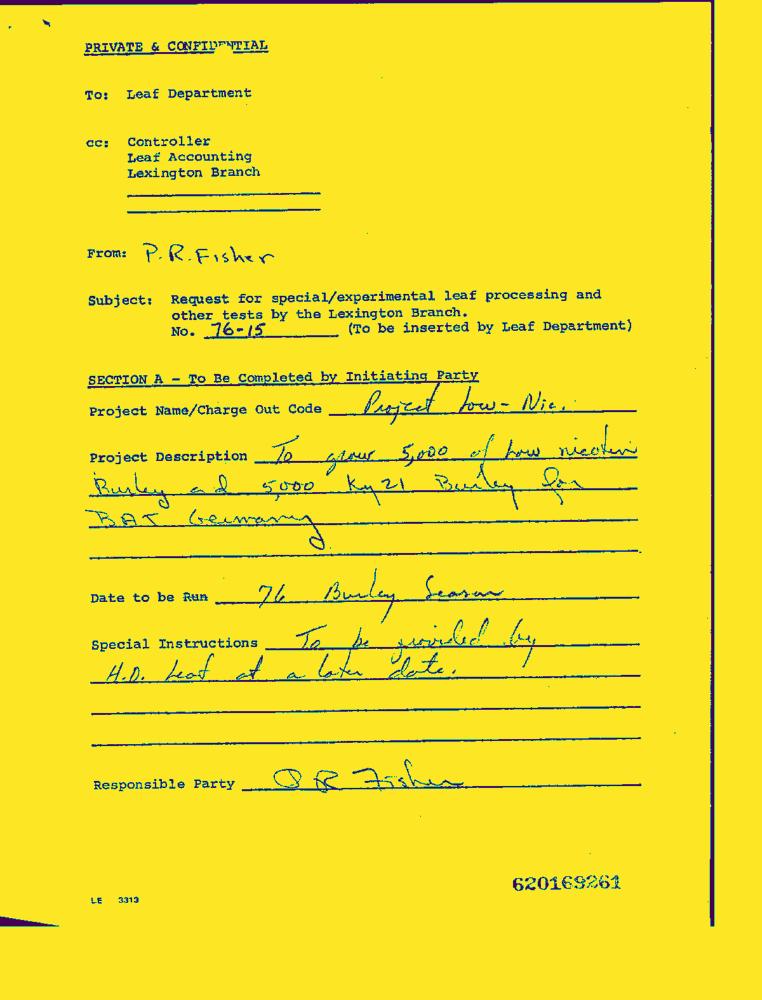 PRIVATE & CONFIDENTIAL
To: Leaf Department
cc: Controller
Leaf Accounting
Lexington Branch
From: P.R. Fisher
Subject: Request for special/experimental leaf processing and
other tests by the Lexington Branch.
No. 76-15 (To be inserted by Leaf Department)
SECTION A - To Be Completed by Initiating Party
Project Name/Charge Out Code Project Low-Nic.
Project Description To grow 5,000 of Low nicotin
Burley and 5,000 Ky 21 Burley for
BAT Germany
Date to be Run 76 Burley Season
Special Instructions To be provided by
H.D. Leaf at a later date.
Responsible Party P R Fisher
620169261
LE 3313